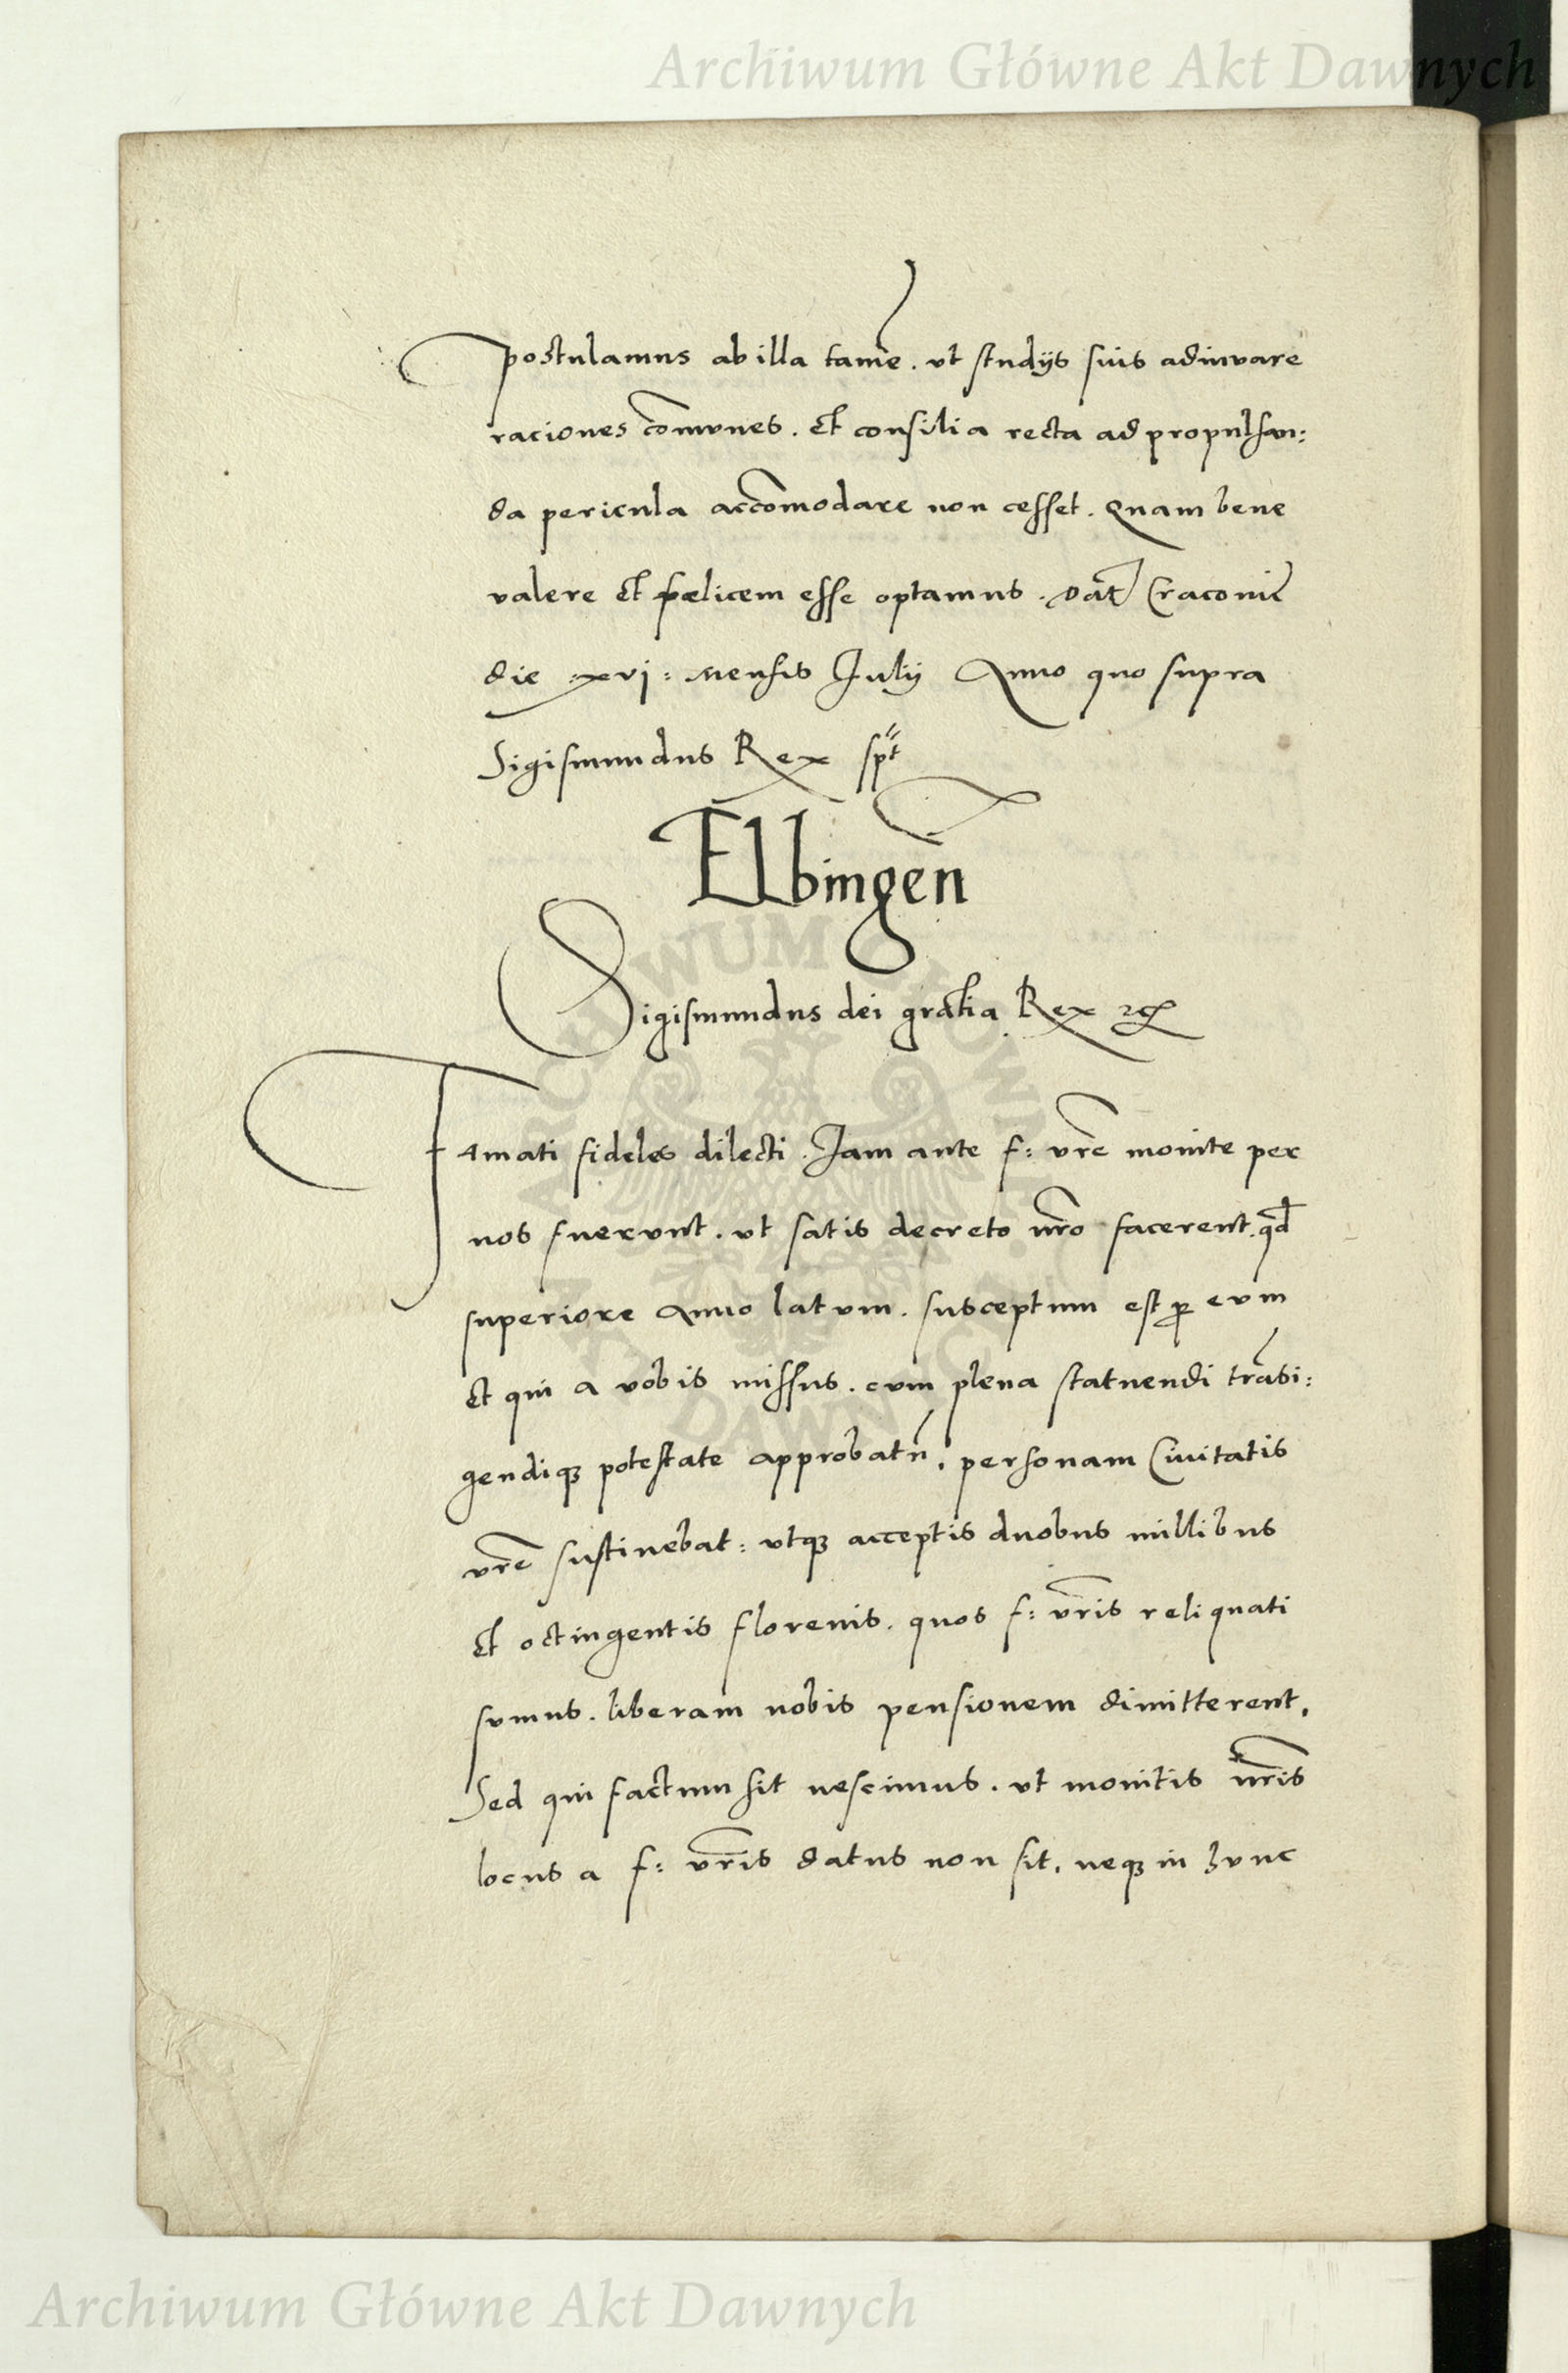 Archiwum Główne Akt Dawnych
postulamus ab illa tamē. vt studijs suis adiuvare
raciones com̄vnes. Et consilia recta ad propulsan:
da pericula accōmodare non cesset. Quam bene
valere Et fœlicem esse optamus. Dat Cracovie
die xvj: Mensis Julij Anno quo supra
Sigismundus Rex spt
Elbingeñ
Sigismundus dei gratia Rex etc
Famati fideles dilecti. Jam ante f: vrē monite per
nos fuerunt. vt satis decreto nr̄o facerent. qd
superiore Anno latvm. susceptum est per evm
Et qui a vobis missus. cvm plena statuendi trāsi:
gendiqȝ potestate approbatū. personam Civitatis
vrē sustinebat: vtqȝ acceptis duobus millibus
Et octingentis florenis. quos f: vr̄is reliquati
svmus. liberam nobis pensionem dimitterent.
Sed qui factum sit nescimus. vt monitis nr̄is
locus a f: vr̄is datus non sit. neqȝ in hvnc
ARCHIWUM GŁÓWNE AKT DAWNYCH
Archiwum Główne Akt Dawnych